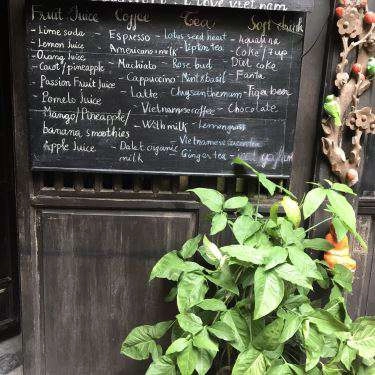 I love Vietnam
Fruit Juice Coffee Tea Soft drink
- Lime soda - Espresso - Lotus seed heart - Aquafina
- Lemon Juice - Americano + milk - Lipton tea - Coke / 7up
- Orang Juice - Machiato - Rose bud - Diet coke
- Carot/pineapple - Cappuccino - Mint & basil - Fanta
- Passion Fruit Juice - Latte - Chrysanthemum - Tiger beer
- Pomelo Juice - Vietnamese coffee - Chocolate
- Mango/Pineapple/ - With milk - Lemongrass
banana smoothies - Vietnamese tea
- Apple Juice - Dalat organic - Ginger tea
milk